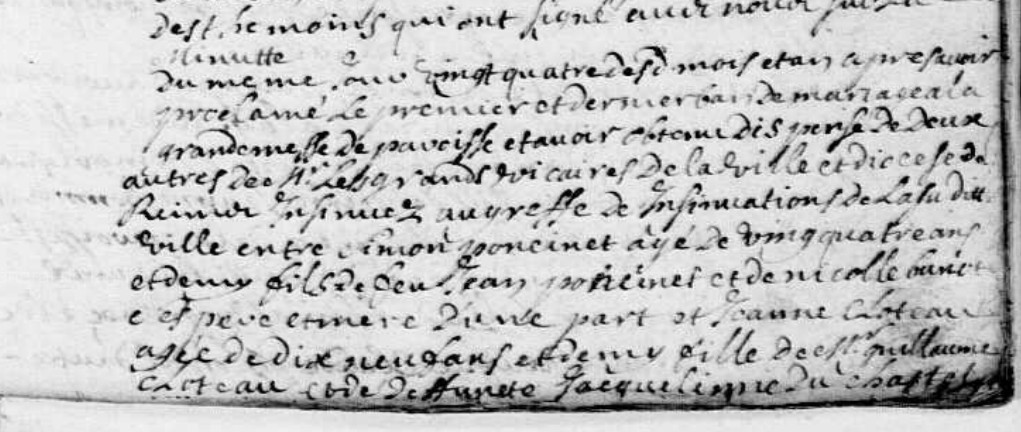 des te moins qui ont signé avec nous sur la
Minutte
Du meme jour vingt quatre desd mois et an apres avoir
proclamé Le premier et dernier ban de mariage a la
grande messe de paroisse et avoir obtenu dis pense de Deux
autres de Mrs Les grands vicaires de la ville et diocese de
Reims Insinuez au greffe de Insinuations de La su ditte
ville entre simon poncinet agé de vingquatre ans
et demy fils de feu Jean poncinet et de nicolle
c es pere et mere D'une part et Jeanne Cloteau
agée de dix neuf ans et demy fille de guillaume
Cloteau et de deffuncte Jacquelinne du